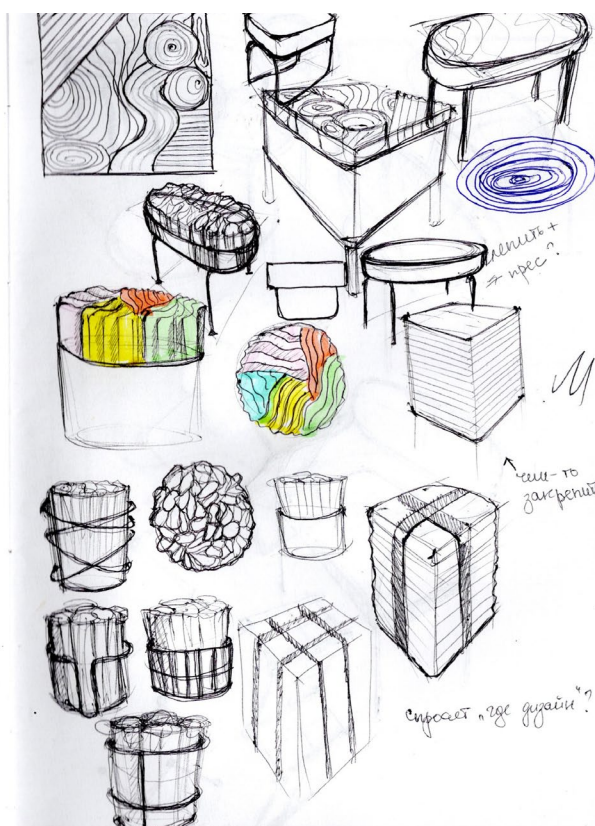 лепить +
→ прес?
чем-то
закрепит
спросят „где дизайн“?